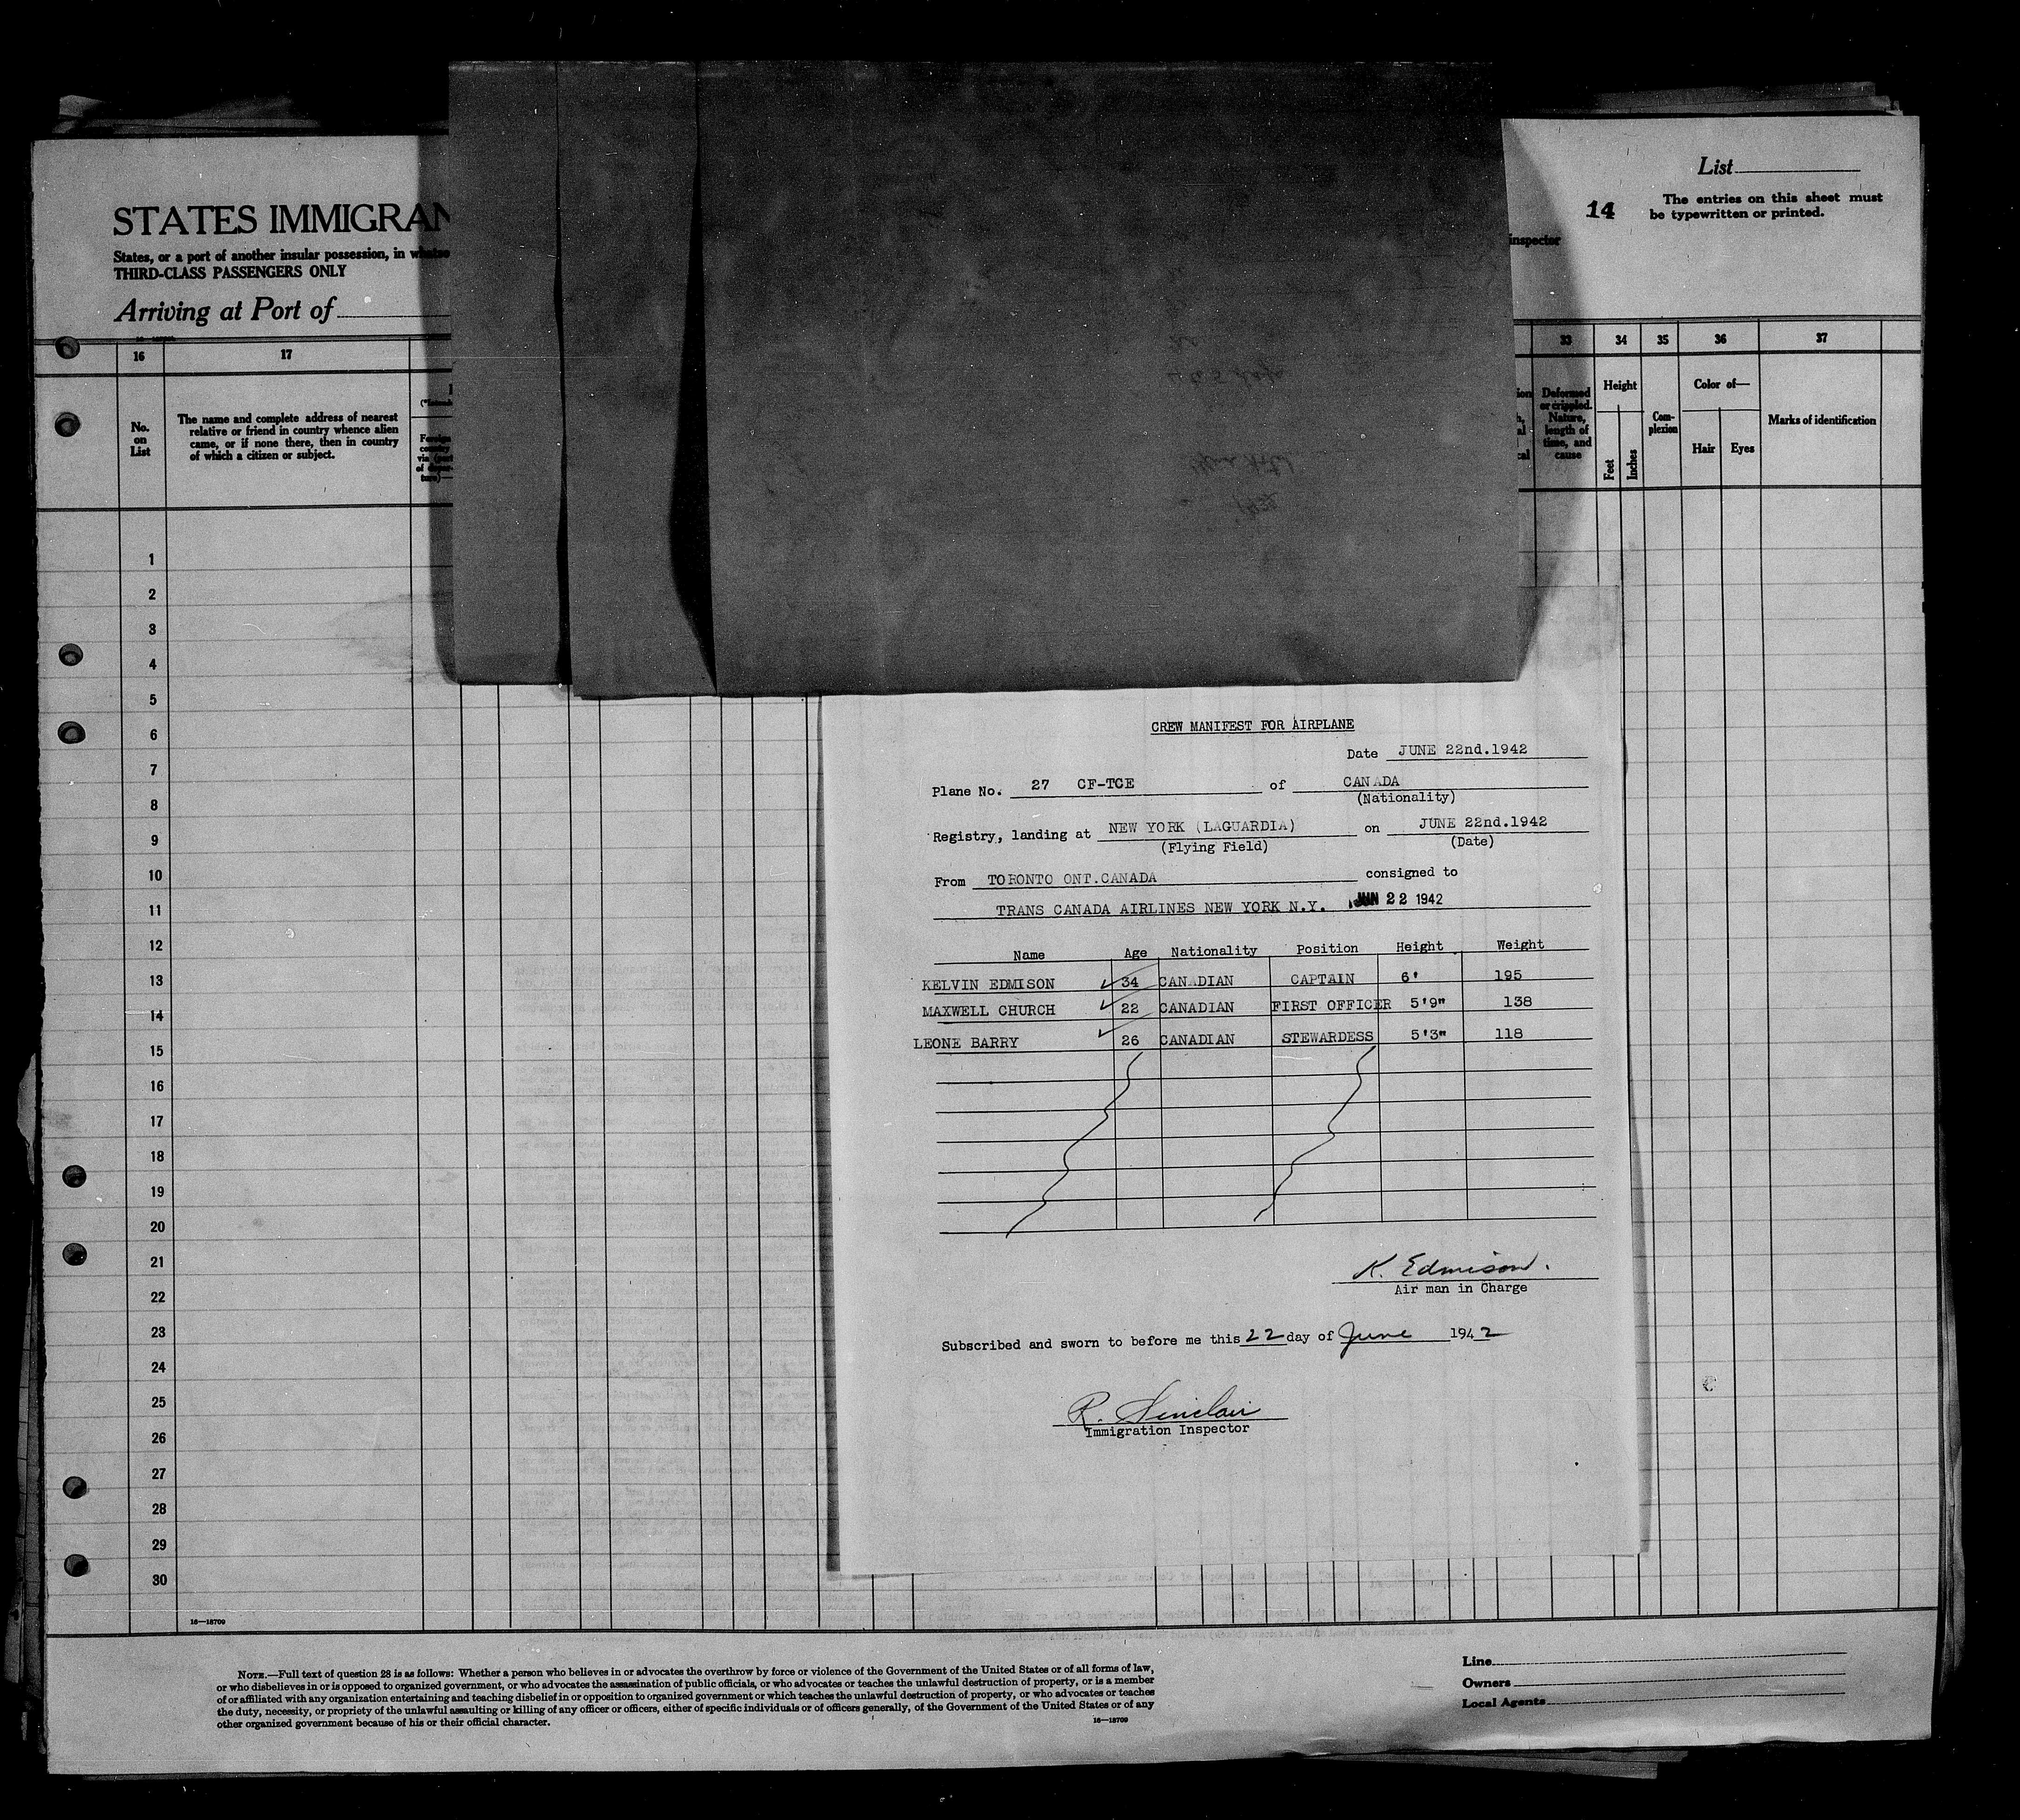 STATES IMMIGRAN
States, or a port of another insular possession, in whatso
THIRD-CLASS PASSENGERS ONLY
Arriving at Port of
List
14
The entries on this sheet must
be typewritten or printed.
inspector
16
17
33
34
35
36
37
No.
on
List
The name and complete address of nearest
relative or friend in country whence alien
came, or if none there, then in country
of which a citizen or subject.
Foreign
country
via (port
of depar-
ture)—
Deformed
or crippled.
Nature,
length of
time, and
cause
Height
Feet
Inches
Com-
plexion
Color of—
Hair
Eyes
Marks of identification
1
2
3
4
5
6
7
8
9
10
11
12
13
14
15
16
17
18
19
20
21
22
23
24
25
26
27
28
29
30
16—18709
CREW MANIFEST FOR AIRPLANE
Date JUNE 22nd.1942
Plane No. 27 CF-TCE of CANADA
(Nationality)
Registry, landing at NEW YORK (LAGUARDIA) on JUNE 22nd.1942
(Flying Field) (Date)
From TORONTO ONT.CANADA consigned to
TRANS CANADA AIRLINES NEW YORK N.Y. JUN 22 1942
Name Age Nationality Position Height Weight
KELVIN EDMISON 34 CANADIAN CAPTAIN 6' 195
MAXWELL CHURCH 22 CANADIAN FIRST OFFICER 5'9" 138
LEONE BARRY 26 CANADIAN STEWARDESS 5'3" 118
K. Edmison.
Air man in Charge
Subscribed and sworn to before me this 22 day of June 1942
R. Sinclair
Immigration Inspector
NOTE.—Full text of question 28 is as follows: Whether a person who believes in or advocates the overthrow by force or violence of the Government of the United States or of all forms of law,
or who disbelieves in or is opposed to organized government, or who advocates the assassination of public officials, or who advocates or teaches the unlawful destruction of property, or is a member
of or affiliated with any organization entertaining and teaching disbelief in or opposition to organized government or which teaches the unlawful destruction of property, or who advocates or teaches
the duty, necessity, or propriety of the unlawful assaulting or killing of any officer or officers, either of specific individuals or of officers generally, of the Government of the United States or of any
other organized government because of his or their official character.
16—18709
Line
Owners
Local Agents